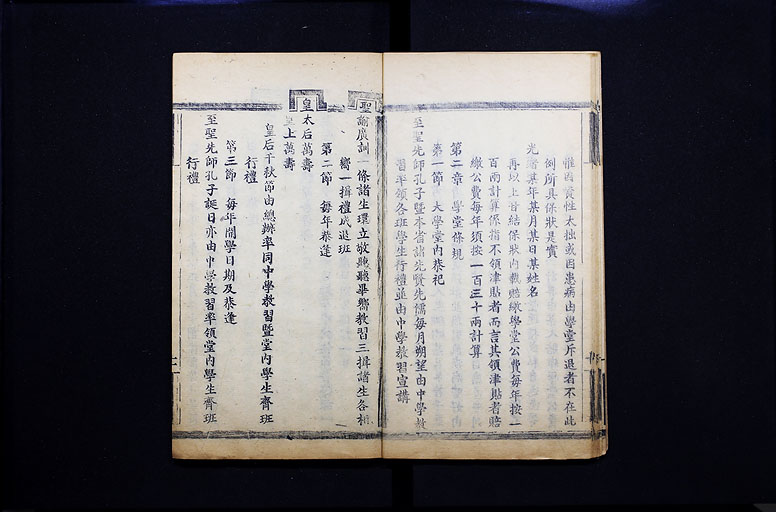 惟因質性太拙或因患病由學堂斥退者不在此
例所具保狀是實
光緒某年某月某日某姓名
再以上甘結保狀內載賠繳學堂公費每年按一
百兩計算係指不領津貼者而言其領津貼者賠
繳公費每年須按一百三十兩計算
第二章 學堂條規
第一節 大學堂內恭祀
至聖先師孔子暨本省諸先賢先儒每月朔望由中學教
習率領各班學生行禮並由中學教習宣講
聖諭廣訓一條諸生環立敬聽聽畢嚮教習三揖諸生各相
嚮一揖禮成退班
第二節 每年恭逢
皇太后萬壽
皇上萬壽
皇后千秋節由總辦率同中學教習暨堂內學生齊班
行禮
第三節 每年開學日期及恭逢
至聖先師孔子誕日亦由中學教習率領堂內學生齊班
行禮